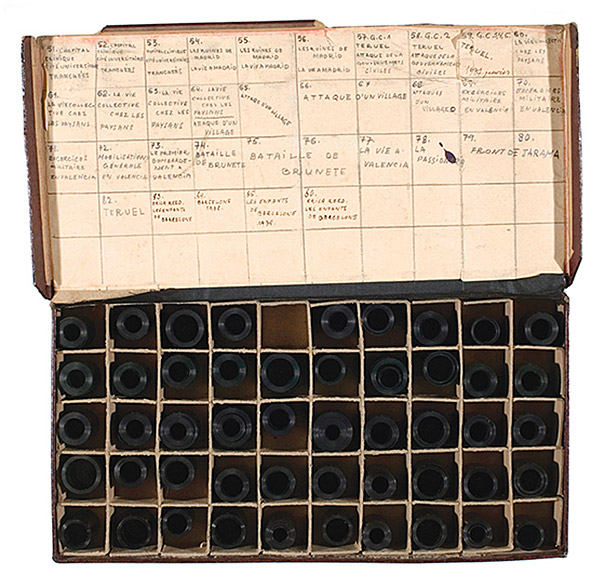 51. CHAPITAL
CLINIQUE
CITÉ UNIVERSITAIRE
TRANCHÉES
52. CHAPITAL
CLINIQUE
CITÉ UNIVERSITAIRE
TRANCHÉES
53.
CITÉ UNIVERSITAIRE
TRANCHÉES
54.
LES RUINES DE
MADRID
LA VIE A MADRID
55.
LES RUINES DE
MADRID
LA VIE A MADRID
56.
LES RUINES DE
MADRID
LA VIE A MADRID
57. G.C.1
TERUEL
ATTAQUE DE LA
GOUVERNEMENTS
CIVILES
58. G.C.2
TERUEL
ATTAQUE DE LA
GOUVERNEMENTS
CIVILES
59. G.C.
TERUEL,
60.
LA VIE
COLLECTIVE
CHEZ LES
PAYSANS
61.
LA VIE COLLEC-
TIVE CHEZ
LES PAYSANS
62. LA VIE
COLLECTIVE
CHEZ LES
PAYSANS
63. LA VIE
COLLECTIVE
CHEZ LES
PAYSANS
64. LA VIE
COLLECTIVE
CHEZ LES
PAYSANS
ATTAQUE D'UN
VILLAGE
65.
ATTAQUE D'UN
VILLAGE
66. 67
ATTAQUE D'UN VILLAGE
68
ATTAQUES
D'UN
VILLAGE
69.
EXERCICES
MILITAIRE
EN VALENCIA
70.
EXERCICES
MILITAIRE
EN VALENCIA
71.
EXERCICES
MILITAIRE
EN VALENCIA
72.
MOBILISATIONS
GÉNERALE
EN VALENCIA
73.
LE PREMIER
BOMBARDE-
MENT A
VALENCIA
74.
BATAILLE
DE
BRUNETE
75. 76.
BATAILLE DE
BRUNETE
77.
LA VIE A
VALENCIA
78.
LA
PASSIONARIA
79. 80.
FRONT DE JARAMA
82.
TERUEL
83.
ERICA REED.
LES ENFANTS
DE
BARCELONE
84.
BARCELONE
1936.
85.
LES ENFANTS
DE BARCELONE
1936.
86.
ERICA REED.
LES ENFANTS
DE
BARCELONE